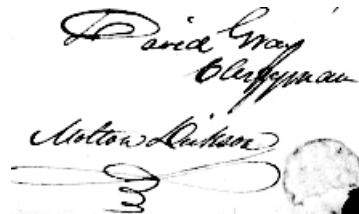 David Gray
Clergyman
Molton Dickson